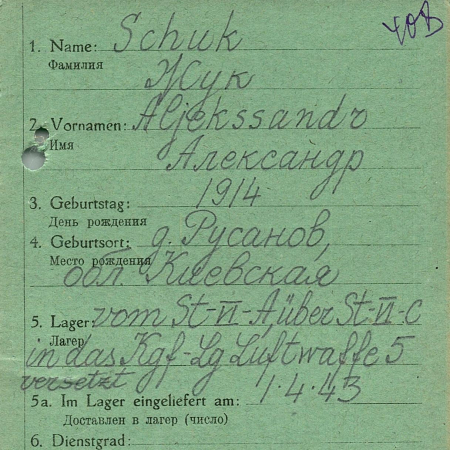 ЧОВ
1. Name: Schuk
Фамилия
Жук
2. Vornamen: Aljekssandr
Имя
Александр
3. Geburtstag: 1914
День рождения
4. Geburtsort: д. Русанов,
Место рождения
обл. Киевская
5. Lager: vom St-VI-A über St-VI-C
Лагер
in das Kgf-Lg Luftwaffe 5
versetzt
1.4.43
5a. Im Lager eingeliefert am:
Доставлен в лагер (число)
6. Dienstgrad: